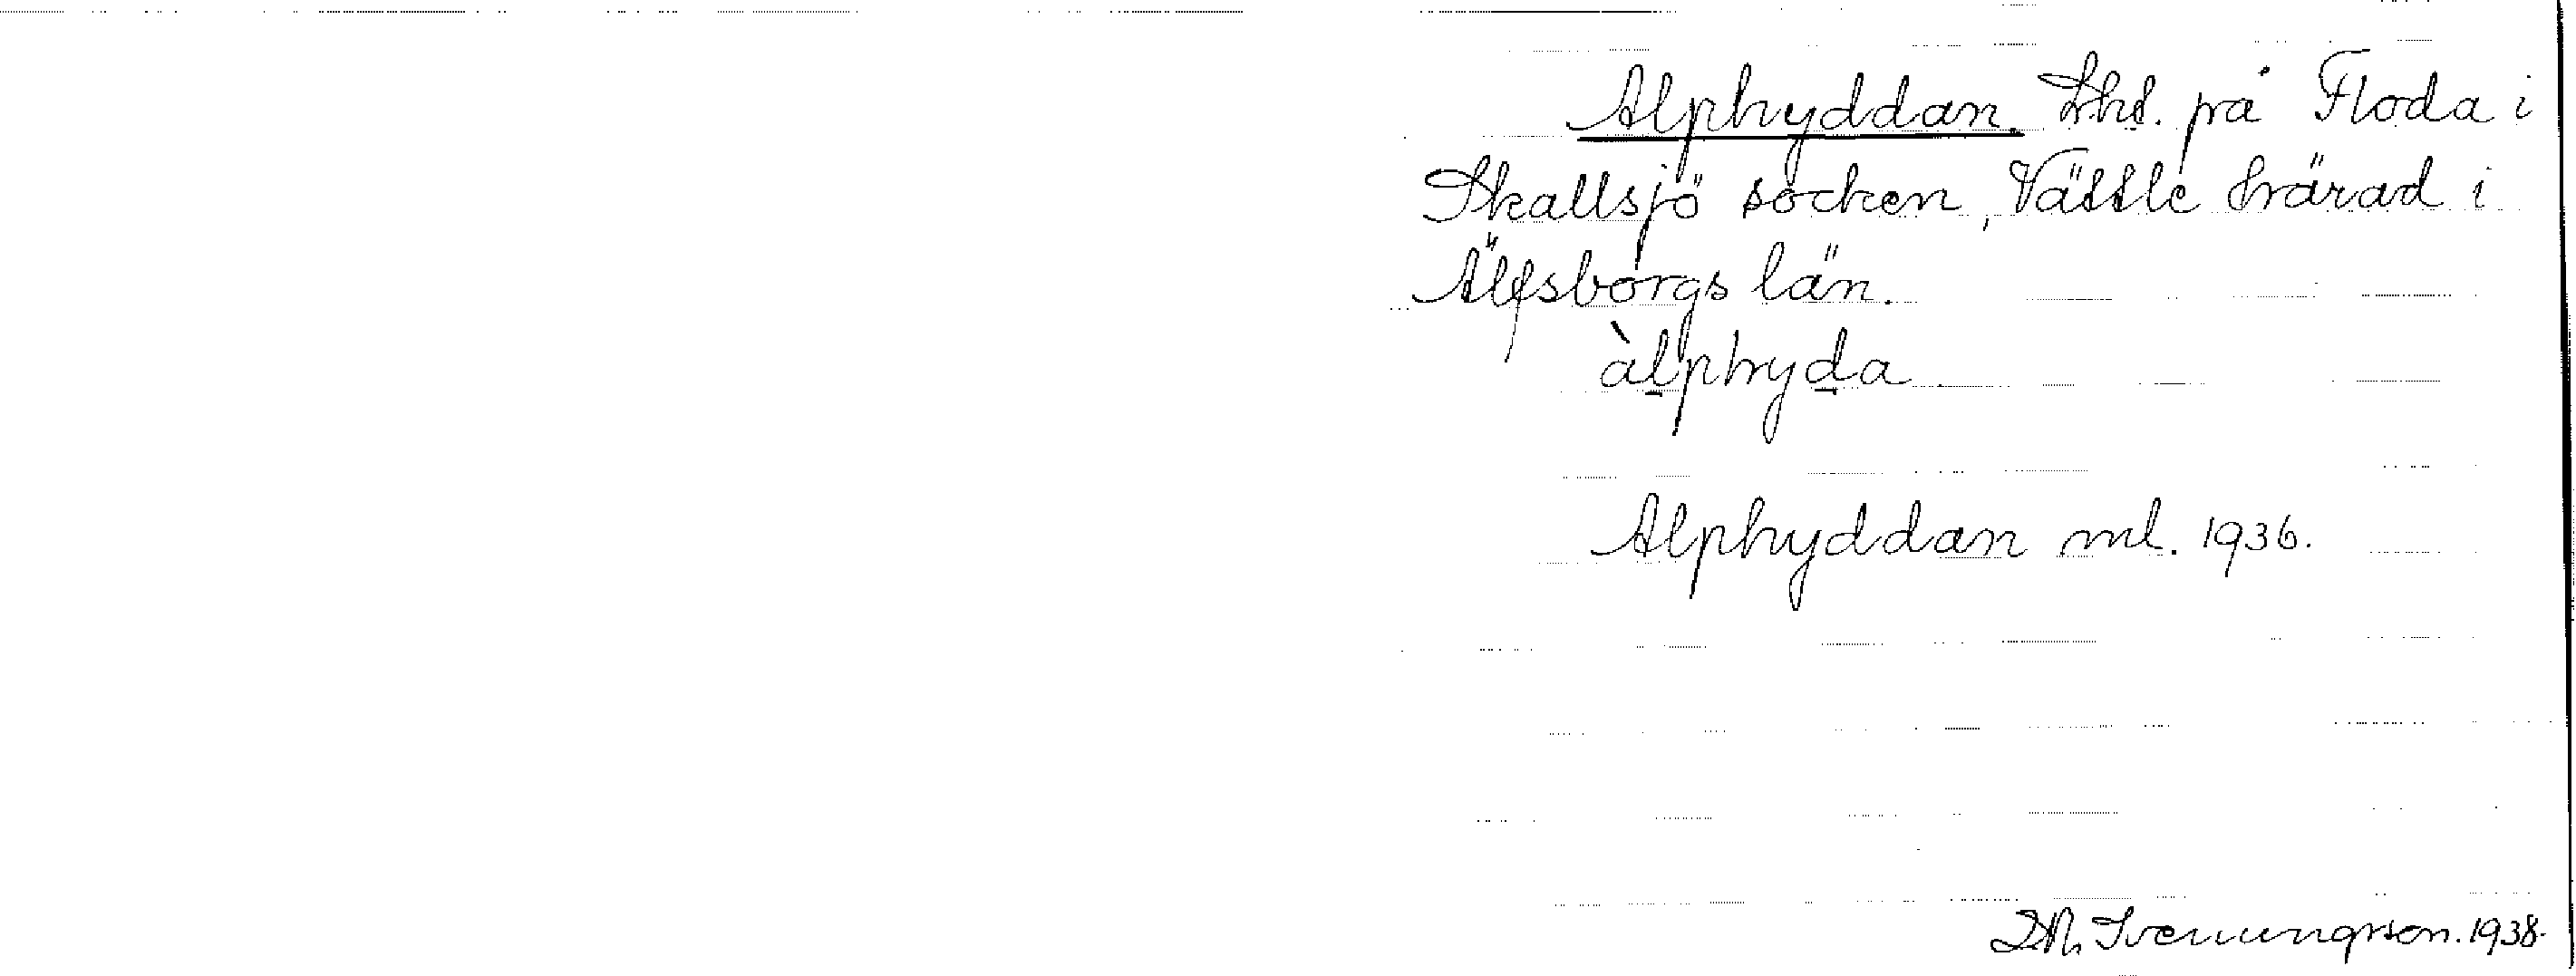 Alphyddan. Lht. på Floda i
Skallsjö socken, Vättle härad i
Älfsborgs län.
àlphyda
Alphyddan ml. 1936.
Svenungsson. 1938.